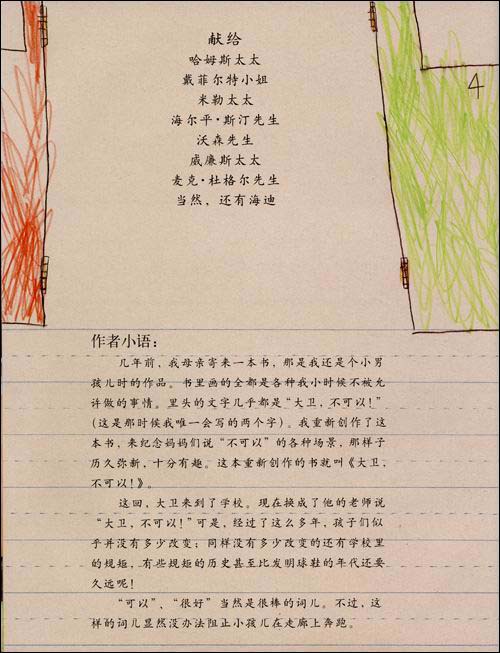 献给
哈姆斯太太
戴菲尔特小姐
米勒太太
海尔平·斯汀先生
沃森先生
威廉斯太太
麦克·杜格尔先生
当然，还有海迪
4
作者小语：
几年前，我母亲寄来一本书，那是我还是个小男
孩儿时的作品。书里画的全都是各种我小时候不被允
许做的事情。里头的文字几乎都是“大卫，不可以！”
（这是那时候我唯一会写的两个字）。我重新创作了这
本书，来纪念妈妈们说“不可以”的各种场景，那样子
历久弥新，十分有趣。这本重新创作的书就叫《大卫，
不可以！》。
这回，大卫来到了学校。现在换成了他的老师说
“大卫，不可以！”可是，经过了这么多年，孩子们似
乎并没有多少改变；同样没有多少改变的还有学校里
的规矩，有些规矩的历史甚至比发明球鞋的年代还要
久远呢！
“可以”、“很好”当然是很棒的词儿。不过，这
样的词儿显然没办法阻止小孩儿在走廊上奔跑。